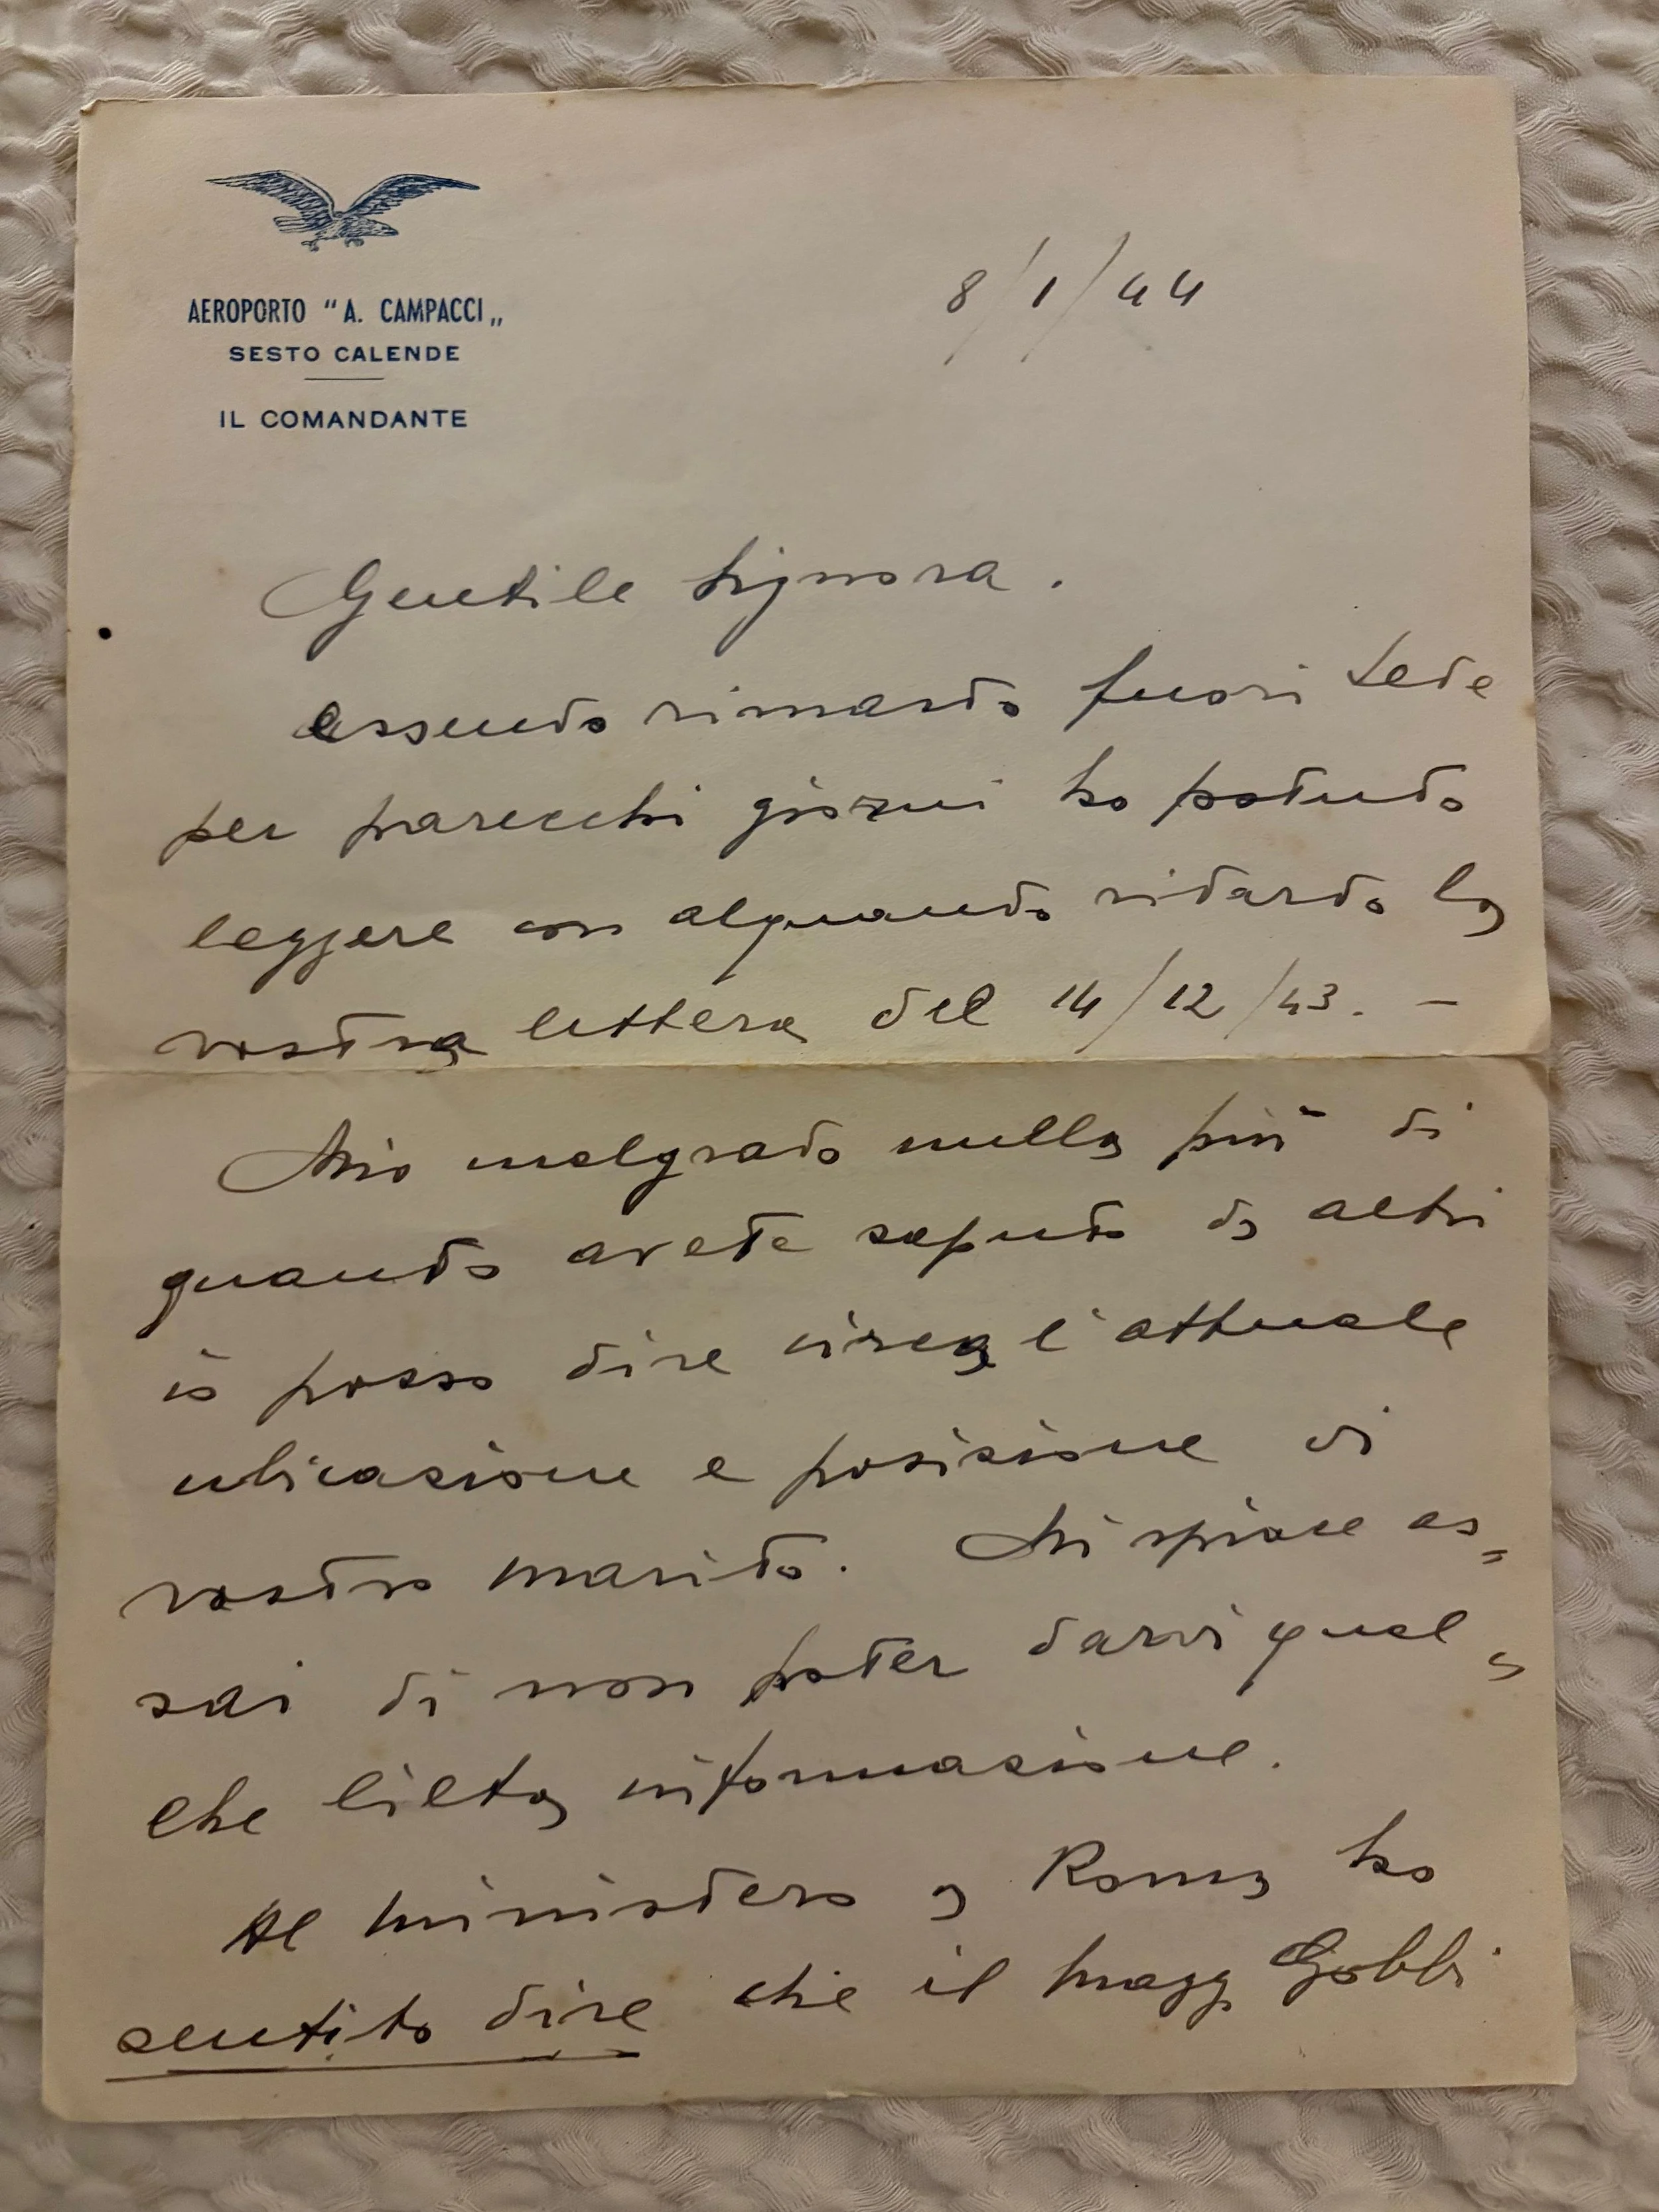 AEROPORTO "A. CAMPACCI„
SESTO CALENDE
IL COMANDANTE
8/1/44
Gentile Signora.
essendo rimasto fuori sede
per parecchi giorni ho potuto
leggere con alquanto ritardo la
vostra lettera del 14/12/43. –
Mio malgrado nulla più di
quanto avete saputo da altri
io posso dire circa l'attuale
ubicazione e posizione di
vostro marito. Mi spiace as=
sai di non poter darvi qual=
che lieta informazione.
Al ministero a Roma ho
sentito dire che il magg. Gobbi